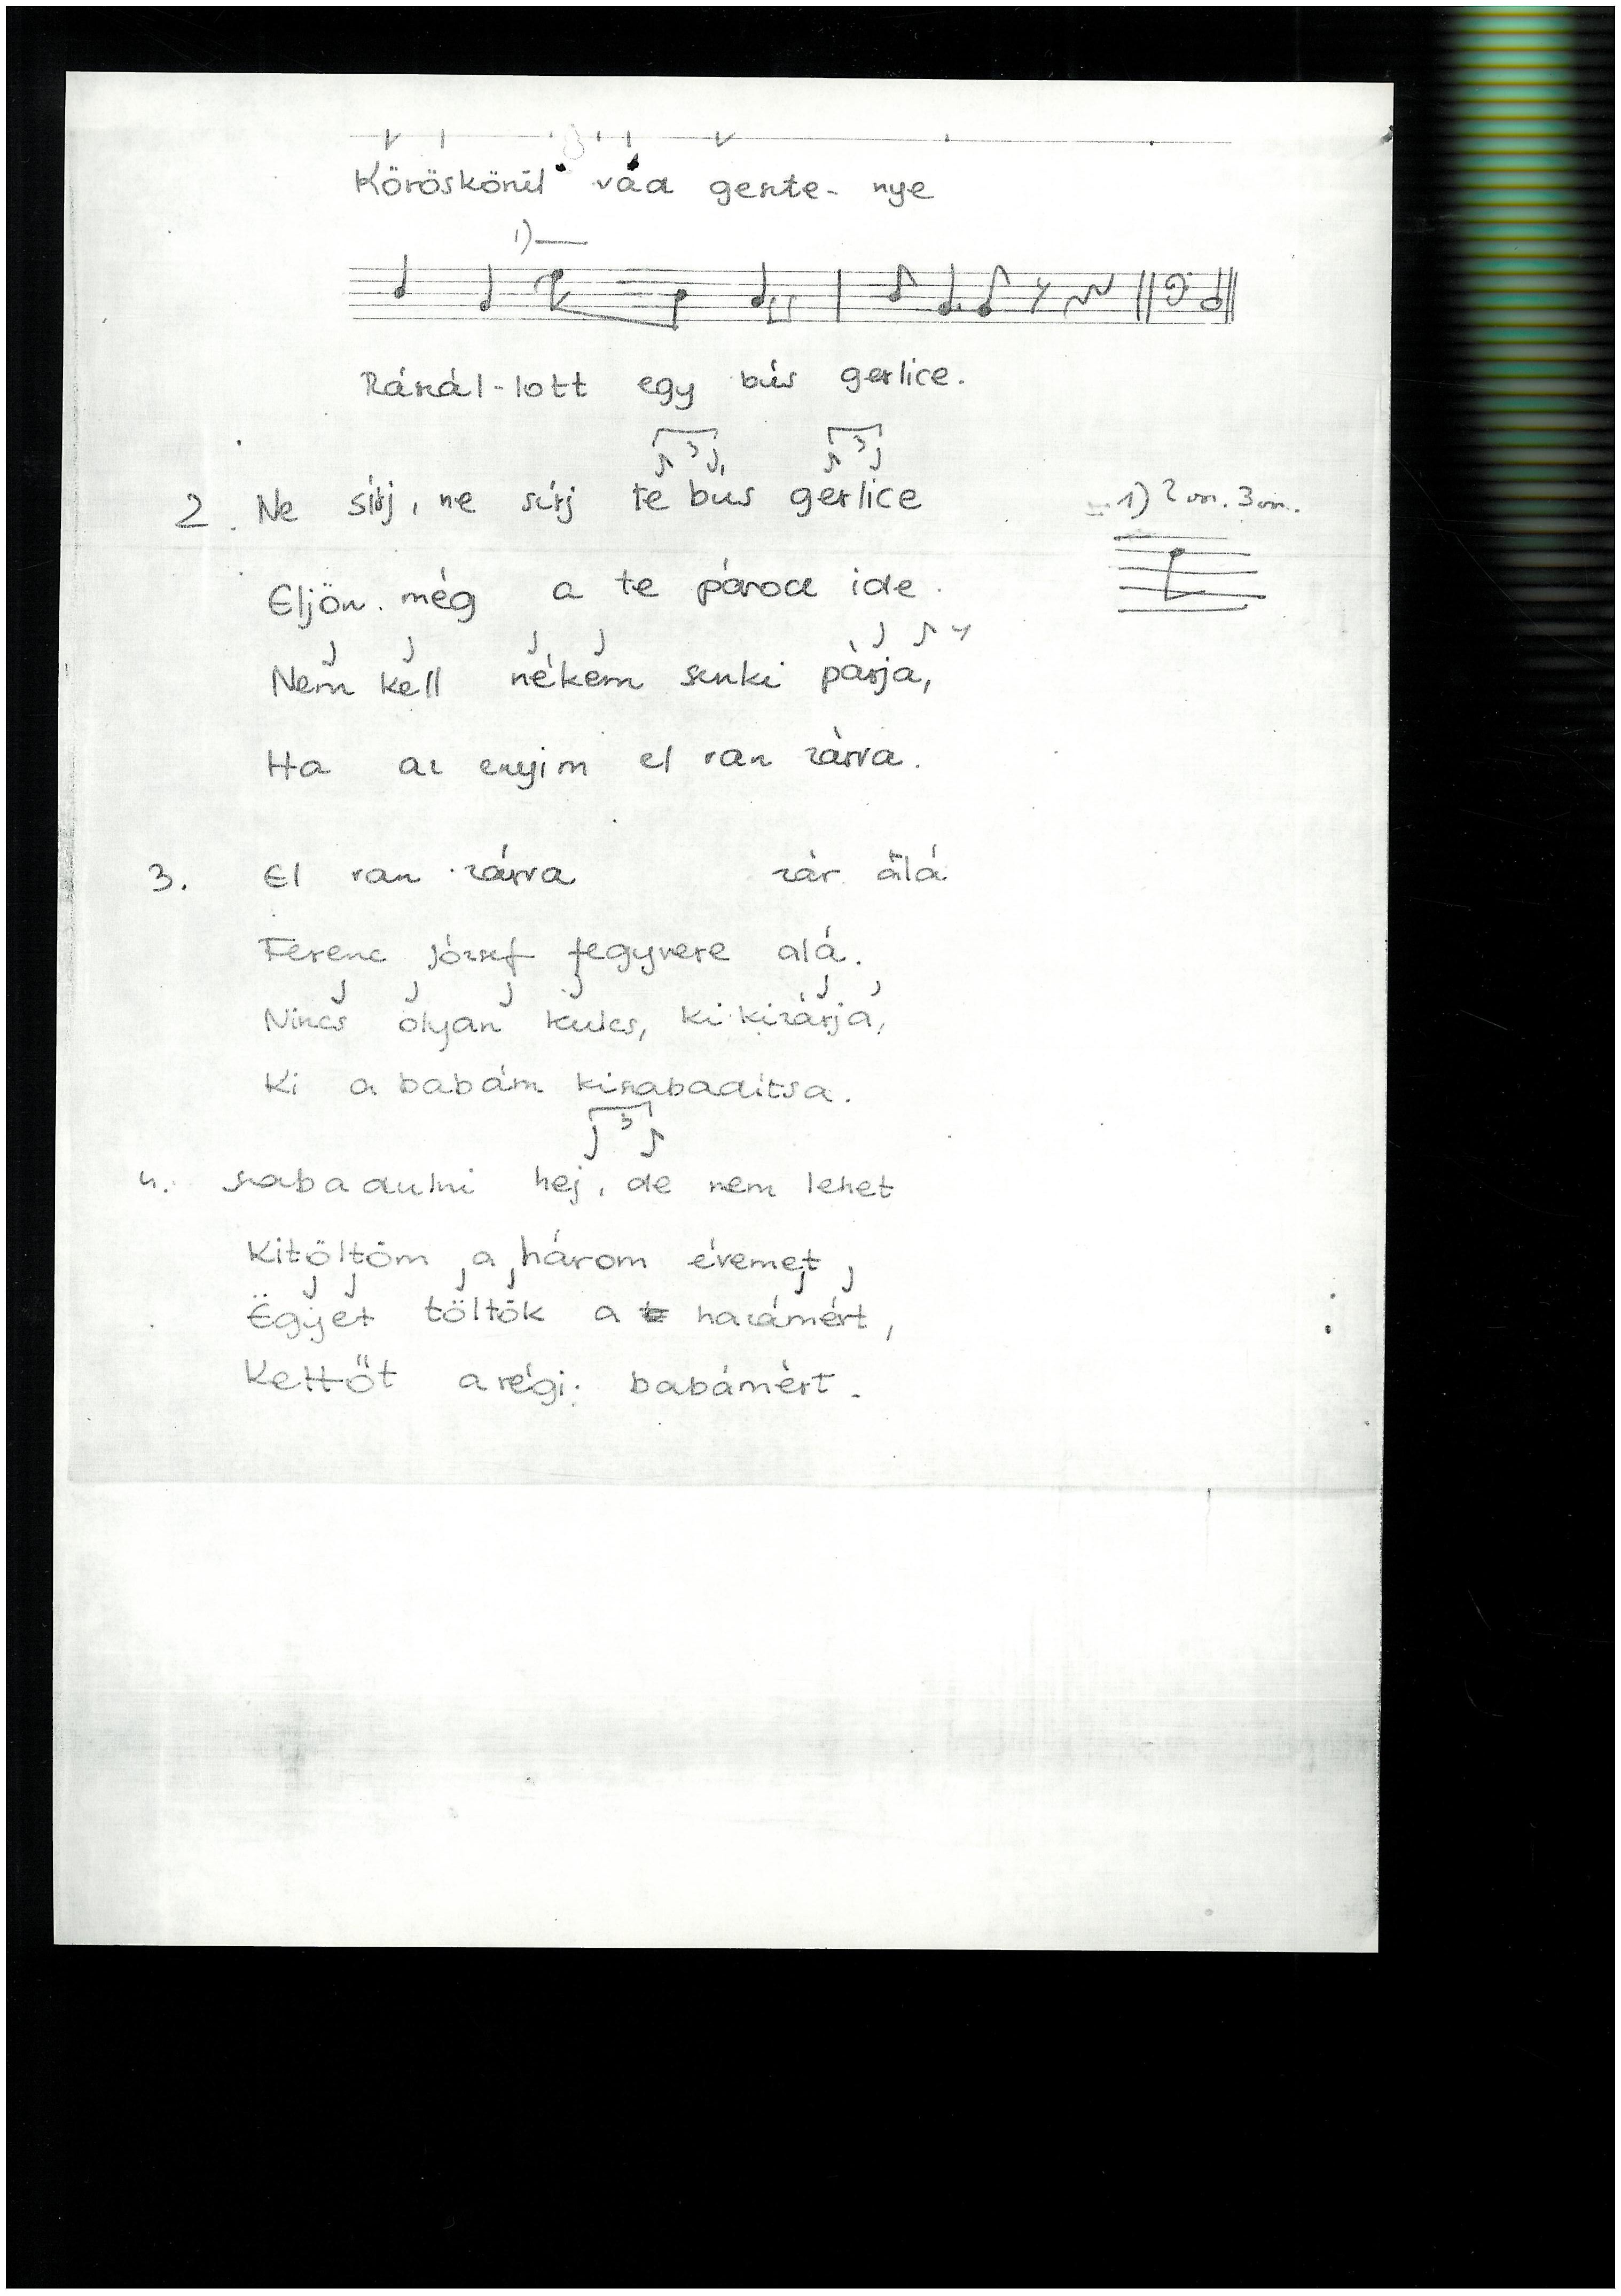 Köröskörül vad geszte- nye
1)
Rászál-lott egy bús gerlice.
3 3
2. Ne sírj, ne sírj te bús gerlice
1) 2 vsz. 3 vsz.
Eljön még a te párod ide.
Nem kell nékem senki párja,
Ha az enyim el van zárva.
3. El van zárva zár álá
Ferenc József fegyvere alá.
Nincs olyan kulcs, ki kizárja,
Ki a babám kiszabadítsa.
3
4. Szabadulni hej, de nem lehet
Kitöltöm a három évemet,
Ëgyet töltök a hazámért,
Kettőt a régi babámért.